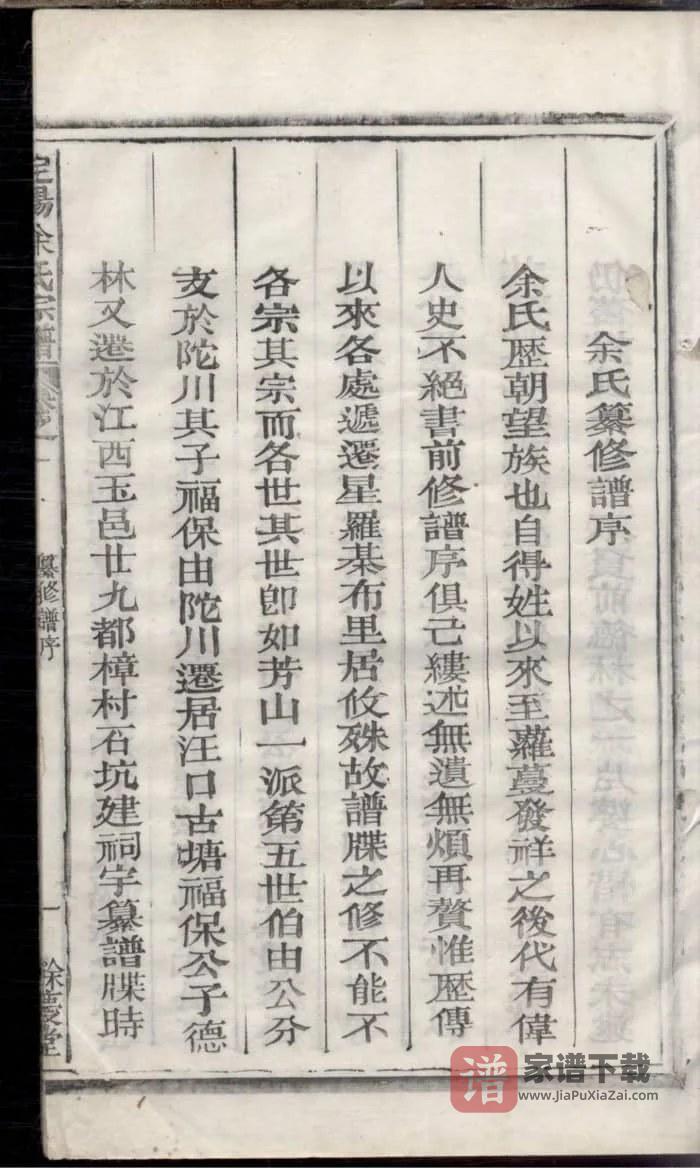 余氏纂修譜序
余氏歷朝望族也自得姓以來至蘿蔓發祥之後代有偉
人史不絕書前修譜序俱已縷述無遺無煩再贅惟歷傳
以來各處遞遷星羅棊布里居攸殊故譜牒之修不能不
各宗其宗而各世其世卽如芳山一派第五世伯由公分
支於陀川其子福保由陀川遷居汪口古塘福保公子德
林又遷於江西玉邑廿九都樟村石坑建祠宇纂譜牒時
余氏宗譜
纂修譜序
一
餘慶堂
家谱下载
www.JiaPuXiaZai.com
谱